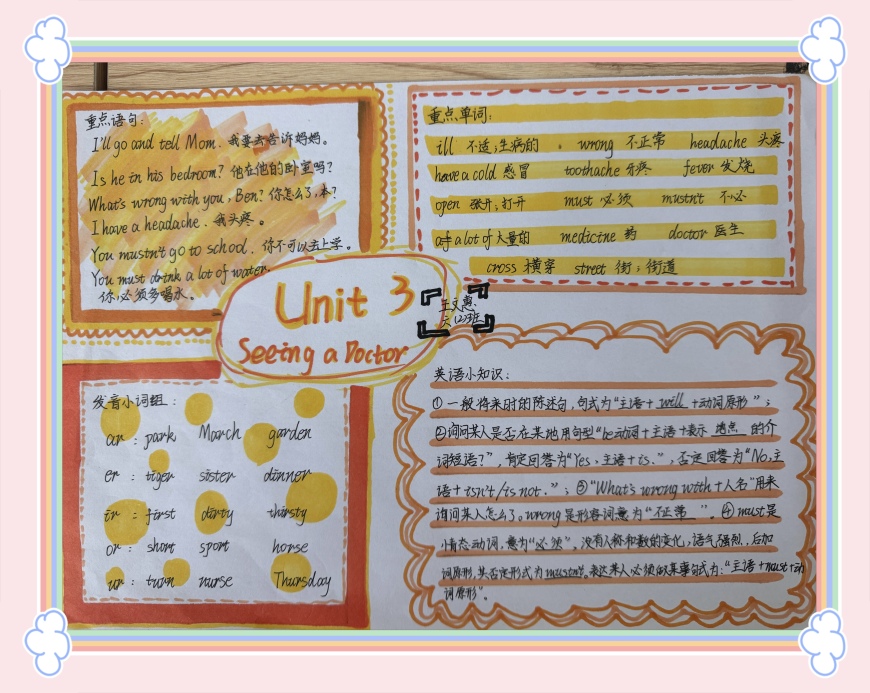 重点语句:
I'll go and tell Mom. 我要去告诉妈妈。
Is he in his bedroom? 他在他的卧室吗?
What's wrong with you, Ben? 你怎么了,本?
I have a headache. 我头疼。
You mustn't go to school. 你不可以去上学。
You must drink a lot of water.
你必须多喝水。
重点单词:
ill 不适;生病的 。 wrong 不正常 headache 头疼
have a cold 感冒 toothache 牙疼 fever 发烧
open 张开;打开 must 必须 mustn't 不必
a lot of 大量的 medicine 药 doctor 医生
cross 横穿 street 街;街道
Unit 3
Seeing a Doctor
王文惠
六(2)班
发音小词组:
ar : park March garden
er : tiger sister dinner
ir : first dirty thirsty
or : short sport horse
ur : turn nurse Thursday
英语小知识:
①一般将来时的陈述句,句式为“主语+ will +动词原形”;
②询问某人是否在某地用句型“be动词+主语+表示 地点 的介
词短语?”,肯定回答为“Yes,主语+is.”,否定回答为“No,主
语+isn't/is not.”;③“What's wrong with+人名”用来
询问某人怎么了。wrong是形容词意为“不正常”。④must是
情态动词,意为“必须”,没有人称和数的变化,语气强烈,后加
词原形,其否定形式为mustn't。表达某人必须做某事句式为:“主语+must+动
词原形”。